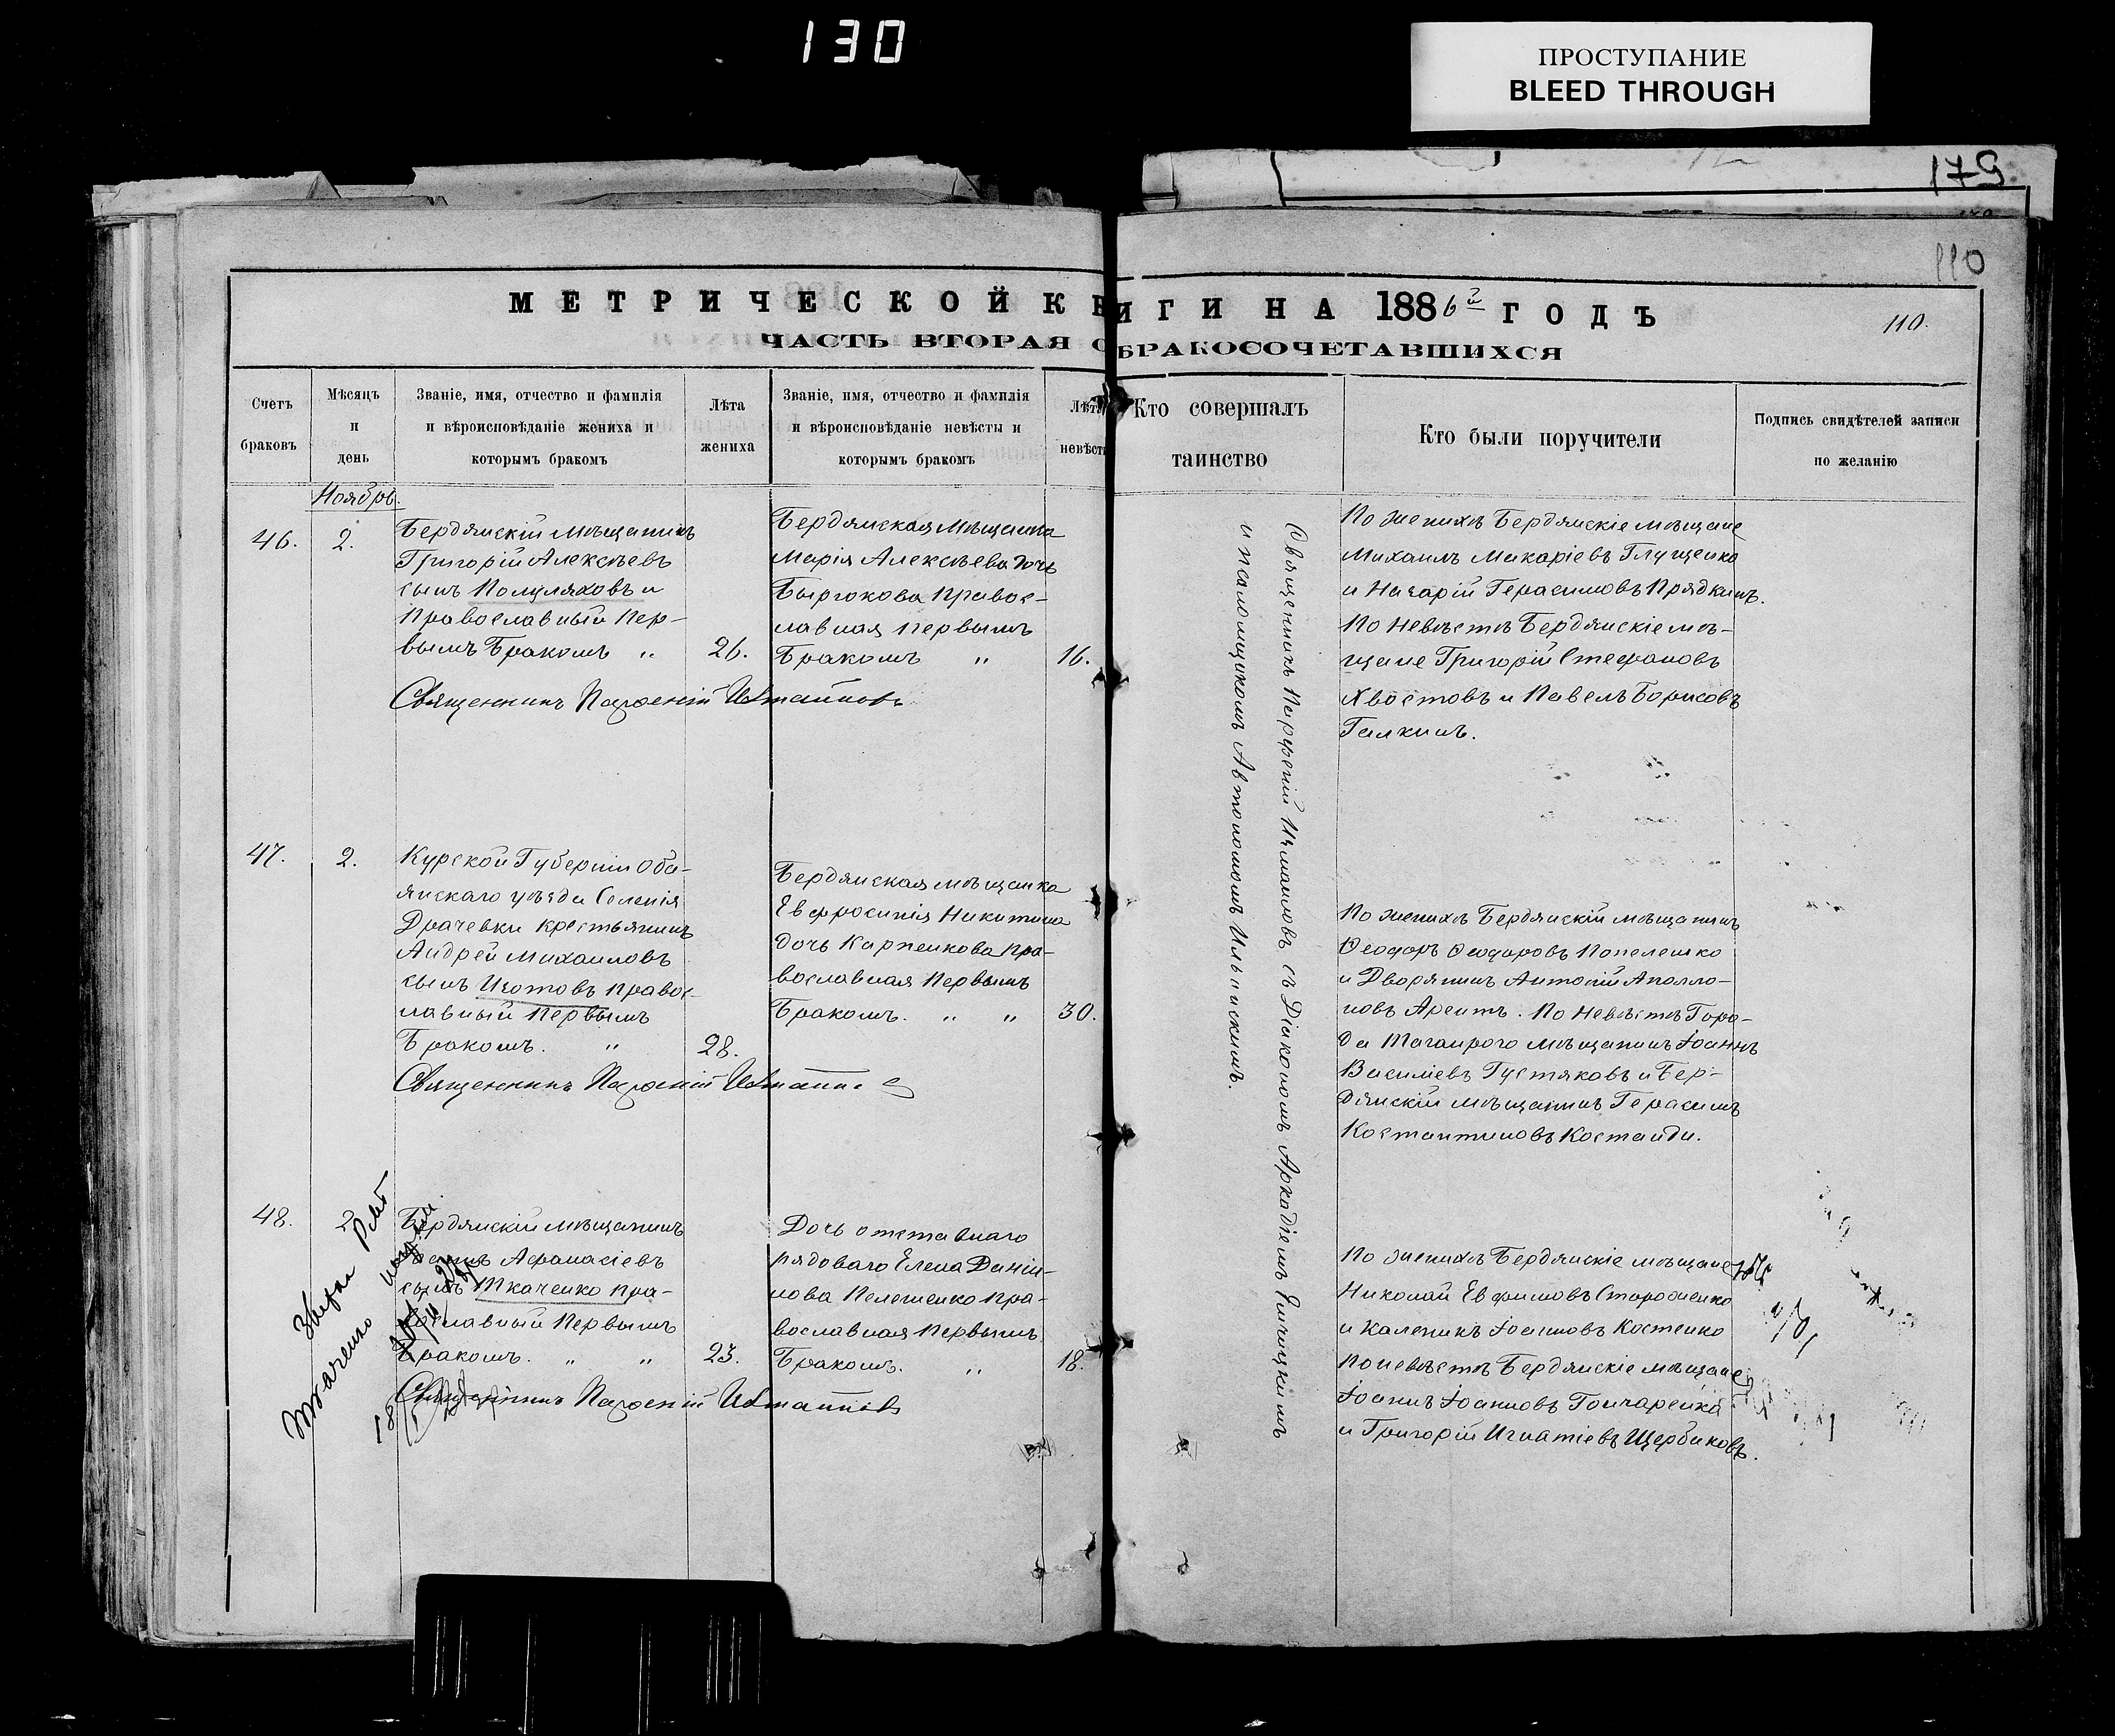 130
ПРОСТУПАНИЕ
BLEED THROUGH
179
110
МЕТРИЧЕСКОЙ КНИГИ НА 1886й ГОДЪ
110.
ЧАСТЬ ВТОРАЯ О БРАКОСОЧЕТАВШИХСЯ
Счетъ
браковъ
Мѣсяцъ
и
день
Званіе, имя, отчество и фамилія
и вѣроисповѣданіе жениха и
которымъ бракомъ
Лѣта
жениха
Званіе, имя, отчество и фамилія
и вѣроисповѣданіе невѣсты и
которымъ бракомъ
Лѣта
невѣсты
Кто совершалъ
таинство
Кто были поручители
Подпись свидѣтелей записи
по желанію
Ноябрь.
46.
2.
Бердянскій Мѣщанинъ
Григорій Алексѣевъ
сынъ Полуляховъ и
Православный Пер-
вымъ Бракомъ „
26.
Бердянская Мѣщанка
Марія Алексѣева дочь
Бырюкова Правос-
лавная Первымъ
Бракомъ „
16.
Священникъ Парѳеній
По женихѣ Бердянскіе мѣщане
Михаилъ Макаріевъ Глущенко
и Назарій Герасимовъ Прядкинъ.
По Невѣстѣ Бердянскіе мѣ-
щане Григорій Стефановъ
Хвостовъ и Павелъ Борисовъ
Галкинъ.
Священникъ Парѳеній съ Діакономъ Аркадіемъ
и псаломщикомъ Автономомъ Ильинскимъ.
47.
2.
Курской Губерніи Обо-
янскаго уѣзда Селенія
Драчевки крестьянинъ
Андрей Михаиловъ
сынъ Изотовъ правос-
лавный Первымъ
Бракомъ. „
28.
Бердянская мѣщанка
Евфросинія Никитина
дочь Карпенкова пра-
вославная Первымъ
Бракомъ. „ „
30.
Священникъ Парѳеній
По женихѣ Бердянскій мѣщанинъ
Ѳеодоръ Ѳеодоровъ Попеленко
и Дворянинъ Антоній Аполло-
новъ Арентъ. По Невѣстѣ Горо-
да Таганрога мѣщанинъ Іоаннъ
Василіевъ Густяковъ и Бер-
дянскій мѣщанинъ Герасимъ
Костантиновъ Костанди.
48.
2.
Бердянскій мѣщанинъ
Афанасіевъ
сынъ Ткаченко пра-
вославный Первымъ
Бракомъ. „ „
23.
Дочь отставнаго
рядоваго Елена Даніи-
лова Пелешенко пра-
вославная Первымъ
Бракомъ. „
18.
Священникъ Парѳеній
Ткаченко
По женихѣ Бердянскіе мѣщане
Николай Евфимовъ Стороженко
и Калиникъ Іоанновъ Костенко
По невѣстѣ Бердянскіе мѣщане
Іоаннъ Іоанновъ Гончаренко
и Григорій Игнатіевъ Щербаковъ.